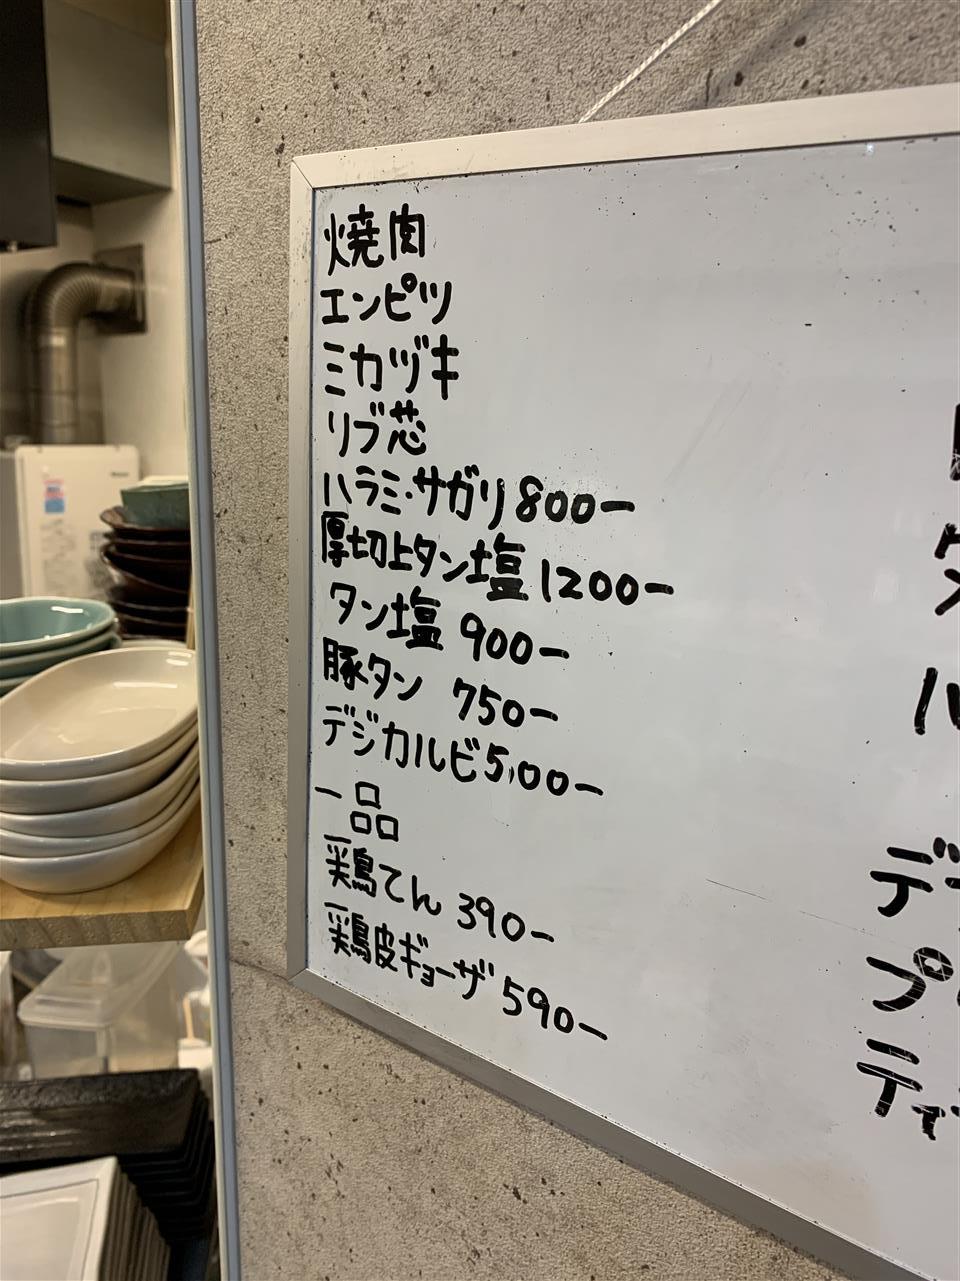 焼肉
エンピツ
ミカヅキ
リブ芯
ハラミ・サガリ 800ー
厚切上タン塩 1200ー
タン塩 900ー
豚タン 750ー
デジカルビ 5,00ー
一品
鶏てん 390ー
鶏皮ギョーザ 590ー
デ
プ
ティ